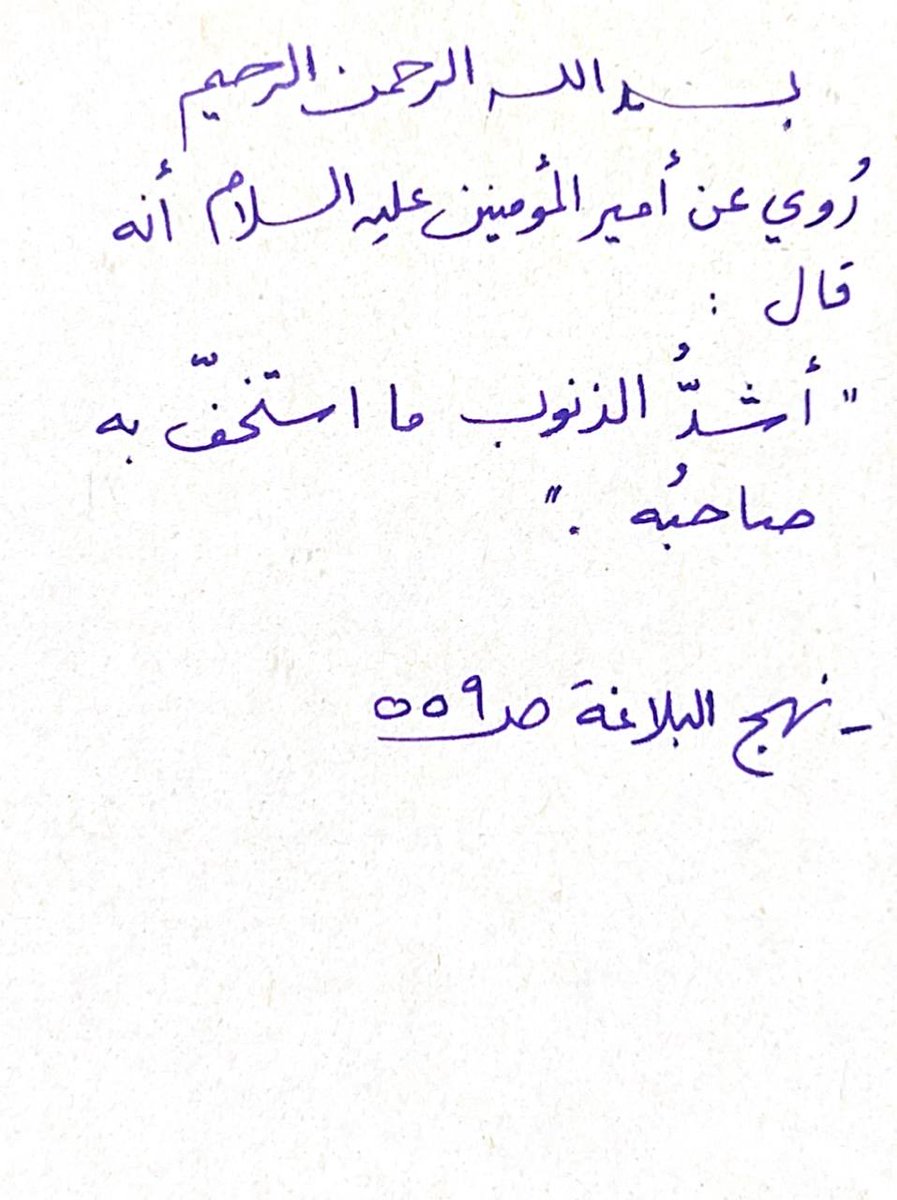 بسم الله الرحمن الرحيم
رُوي عن أمير المؤمنين عليه السلام أنه
قال :
"أشدُّ الذنوب ما استخفّ به
صاحبُه ."
- نهج البلاغة صـ٥٥٩